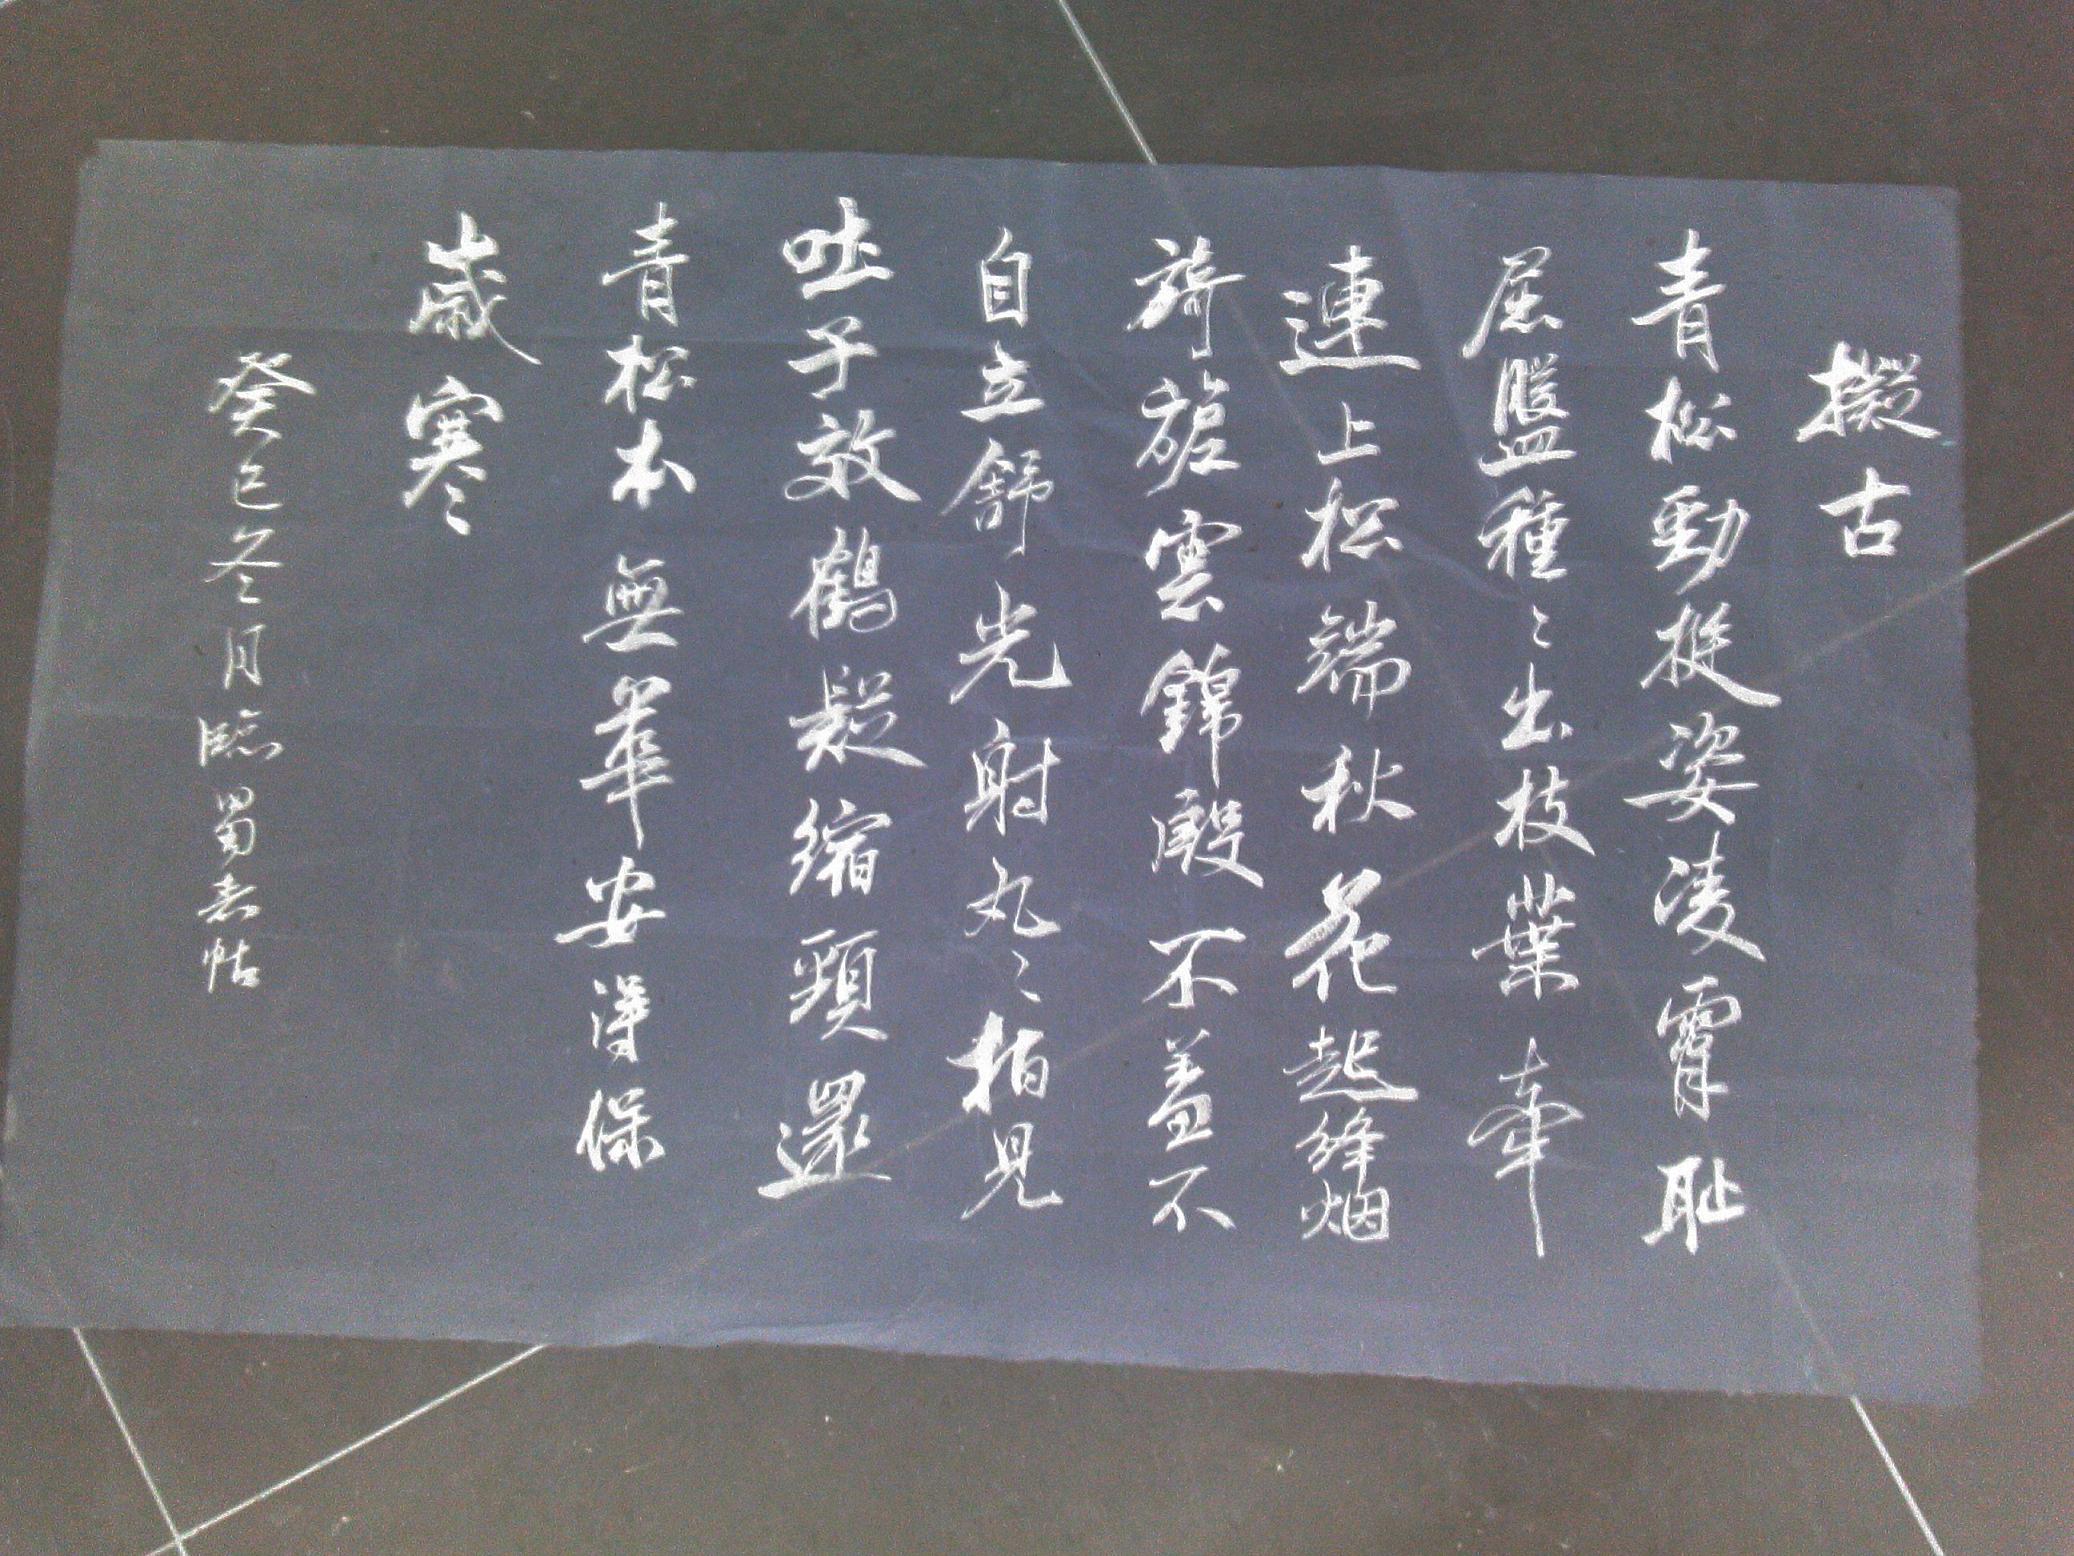 擬古
青松勁挺姿凌霄耻
屈盤種〻出枝葉牽
連上松端秋花起絳烟
旖旎雲錦殷不羞不
自立舒光射丸〻柏見
吐子效鶴疑縮頸還
青松本無華安得保
歲寒
癸巳冬月臨蜀素帖